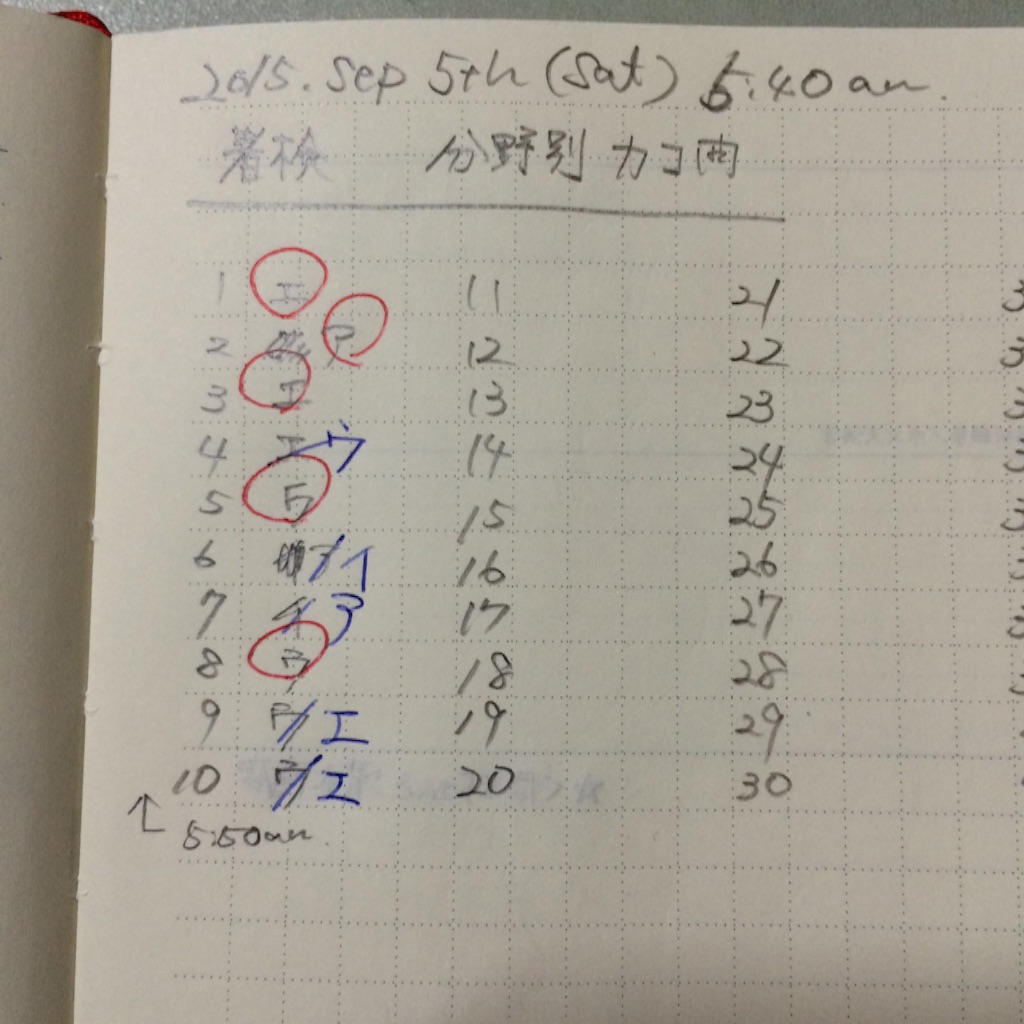 2015. Sep 5th (Sat) 5:40am.
著検 分野別 カコ問
1 エ 11 21 3
2 ア 12 22 3
3 エ 13 23 3
4 エ ウ 14 24 3
5 ウ 15 25 3
6 イ 16 26
7 イ ア 17 27 3
8 ウ 18 28
9 ア エ 19 29
10 ウ エ 20 30
5:50am.